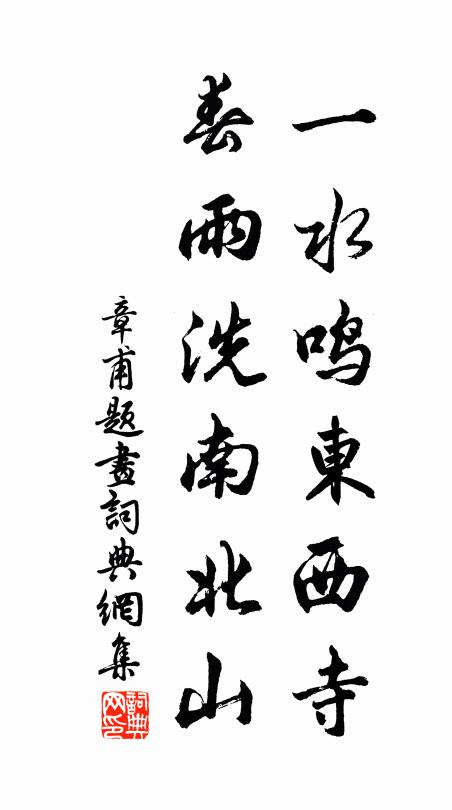 一水鸣東西寺
春雨洗南北山
章甫題畫詞典網集
詞典网印